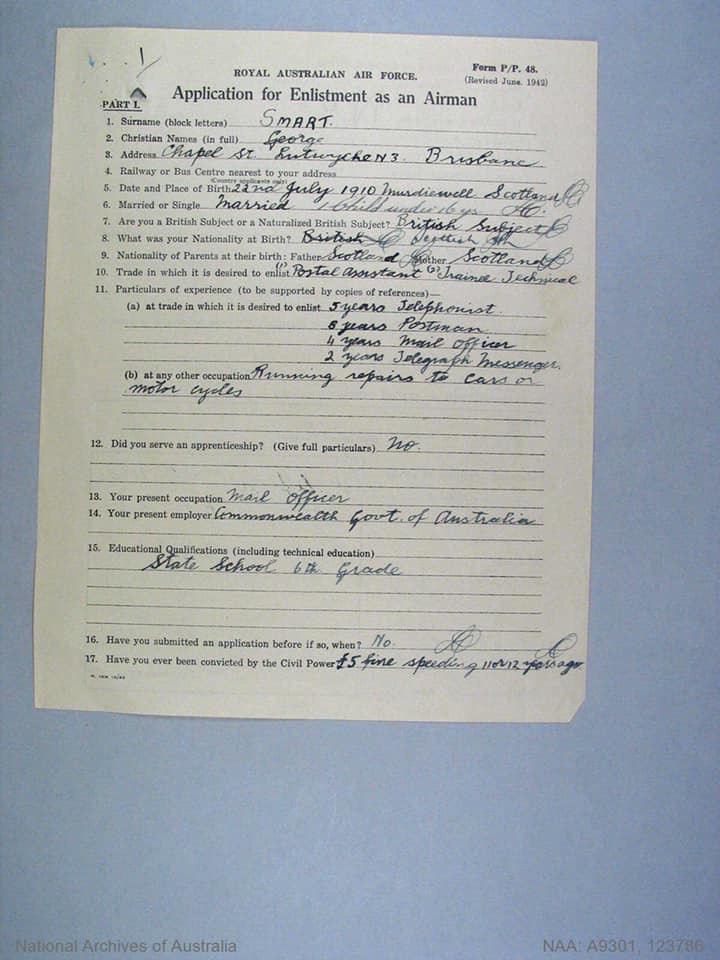 Form P/P. 48.
ROYAL AUSTRALIAN AIR FORCE.
(Revised June, 1942)
Application for Enlistment as an Airman
PART I.
1. Surname (block letters) SMART.
2. Christian Names (in full) George
3. Address Chapel St. Lutwyche N3. Brisbane
4. Railway or Bus Centre nearest to your address
(Country applicants only)
5. Date and Place of Birth 22nd July 1910 Scotland
6. Married or Single Married 1 Child under 16 yrs
7. Are you a British Subject or a Naturalized British Subject? British Subject
8. What was your Nationality at Birth? British Scottish
9. Nationality of Parents at their birth: Father Scotland Mother Scotland
10. Trade in which it is desired to enlist (1) Postal Assistant (2) Trainee Technical
11. Particulars of experience (to be supported by copies of references)—
(a) at trade in which it is desired to enlist 5 years Telephonist.
8 years Postman
4 years Mail Officer
2 years Telegraph Messenger.
(b) at any other occupation Running repairs to cars or
motor cycles
12. Did you serve an apprenticeship? (Give full particulars) No.
13. Your present occupation Mail Officer
14. Your present employer Commonwealth Govt. of Australia
15. Educational Qualifications (including technical education)
State School 6th Grade
16. Have you submitted an application before if so, when? No.
17. Have you ever been convicted by the Civil Power £5 fine speeding 11 or 12 years ago
National Archives of Australia
NAA: A9301, 123786